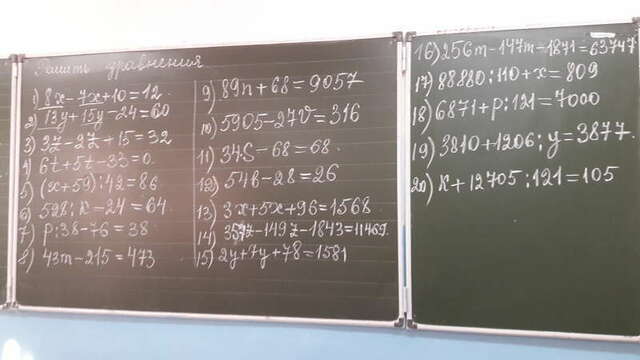 Решить уравнения
1) 8x-7x+10=12
2) 13y+15y-24=60
3) 3z-2z+15=32
4) 6t+5t-33=0
5) (x+59):42=86
6) 528:k-24=64
7) p:38-76=38
8) 43m-215=473
9) 89n+68=9057
10) 5905-27v=316
11) 34s-68=68
12) 54b-28=26
13) 3x+5x+96=1568
14) -149z-1843=11469
15) 2y+7y+78=1581
16) 256m-147m-1871=63747
17) 88880:110+x=809
18) 6871+p:121=7000
19) 3810+1206:y=3877
20) k+12705:121=105